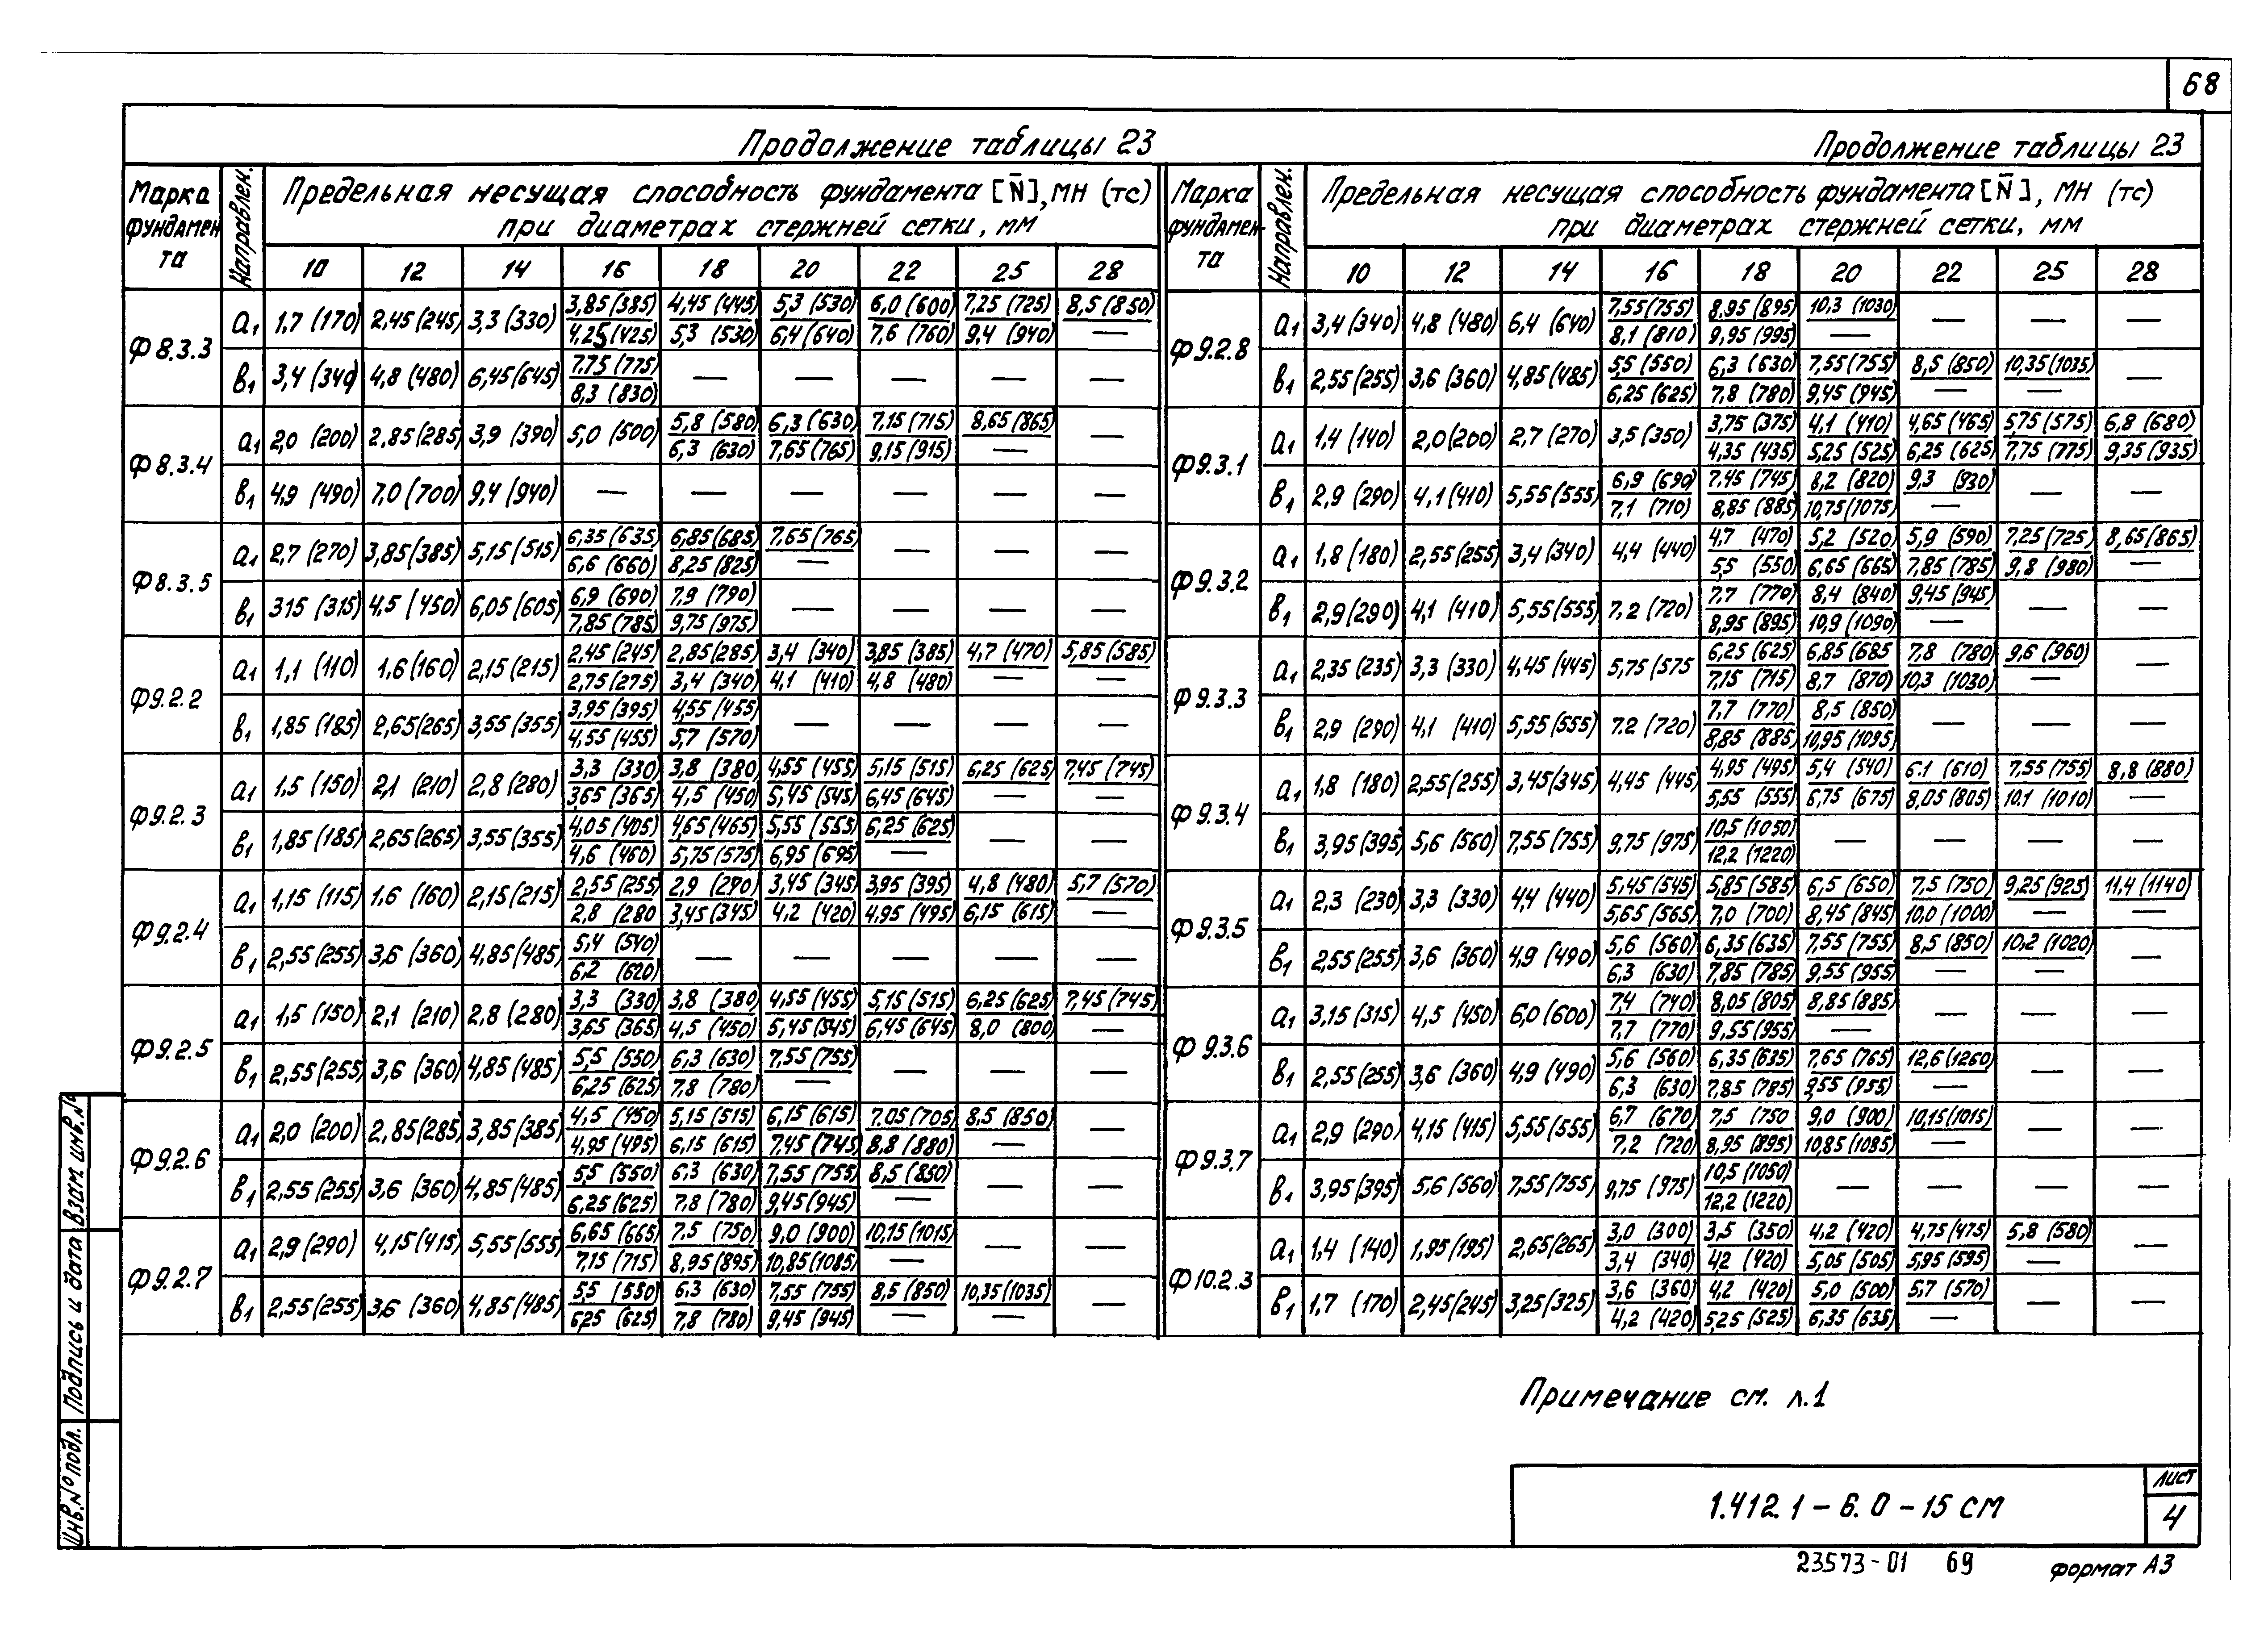 68
Продолжение таблицы 23
Марка фундамента Направлен. Предельная несущая способность фундамента [N̄], МН (тс) при диаметрах стержней сетки, мм
10 12 14 16 18 20 22 25 28
Ф8.3.3
а1 1,7 (170) 2,45 (245) 3,3 (330) 3,85 (385) 4,45 (445) 5,3 (530) 6,0 (600) 7,25 (725) 8,5 (850)
4,25 (425) 5,3 (530) 6,4 (640) 7,6 (760) 9,4 (940) —
в1 3,4 (340) 4,8 (480) 6,45 (645) 7,75 (775) — — — — —
8,3 (830)
Ф8.3.4
а1 2,0 (200) 2,85 (285 3,9 (390) 5,0 (500) 5,8 (580) 6,3 (630) 7,15 (715) 8,65 (865) —
6,3 (630) 7,65 (765) 9,15 (915) —
в1 4,9 (490) 7,0 (700) 9,4 (940) — — — — — —
Ф8.3.5
а1 2,7 (270) 3,85 (385) 5,15 (515) 6,35 (635) 6,85 (685) 7,65 (765) — — —
6,6 (660) 8,25 (825) —
в1 315 (315) 4,5 (450) 6,05 (605) 6,9 (690) 7,9 (790) — — — —
7,85 (785) 9,75 (975)
Ф9.2.2
а1 1,1 (110) 1,6 (160) 2,15 (215) 2,45 (245) 2,85 (285) 3,4 (340) 3,85 (385) 4,7 (470) 5,85 (585)
2,75 (275) 3,4 (340) 4,1 (410) 4,8 (480) — —
в1 1,85 (185) 2,65 (265) 3,55 (355) 3,95 (395) 4,55 (455) — — — —
4,55 (455) 5,7 (570)
Ф9.2.3
а1 1,5 (150) 2,1 (210) 2,8 (280) 3,3 (330) 3,8 (380 4,55 (455) 5,15 (515) 6,25 (625) 7,45 (745)
365 (365) 4,5 (450) 5,45 (545) 6,45 (645) — —
в1 1,85 (185) 2,65 (265) 3,55 (355) 4,05 (405) 4,65 (465) 5,55 (555) 6,25 (625) — —
4,6 (460) 5,75 (575) 6,95 (695) —
Ф9.2.4
а1 1,15 (115) 1,6 (160) 2,15 (215) 2,55 (255) 2,9 (290) 3,45 (345) 3,95 (395) 4,8 (480) 5,7 (570)
2,8 (280 3,45 (345) 4,2 (420) 4,95 (495) 6,15 (615) —
в1 2,55 (255) 3,6 (360) 4,85 (485) 5,4 (540) — — — — —
6,2 (620)
Ф9.2.5
а1 1,5 (150) 2,1 (210) 2,8 (280) 3,3 (330) 3,8 (380 4,55 (455) 5,15 (515) 6,25 (625) 7,45 (745)
3,65 (365) 4,5 (450) 5,45 (545) 6,45 (645) 8,0 (800) —
в1 2,55 (255) 3,6 (360) 4,85 (485) 5,5 (550) 6,3 (630) 7,55 (755) — — —
6,25 (625) 7,8 (780) —
Ф9.2.6
а1 2,0 (200) 2,85 (285) 3,85 (385) 4,5 (450) 5,15 (515) 6,15 (615) 7,05 (705) 8,5 (850) —
4,95 (495) 6,15 (615) 7,45 (745) 8,8 (880) —
в1 2,55 (255) 3,6 (360) 4,85 (485) 5,5 (550) 6,3 (630) 7,55 (755) 8,5 (850) — —
6,25 (625) 7,8 (780) 9,45 (945) —
Ф9.2.7
а1 2,9 (290) 4,15 (415) 5,55 (555) 6,65 (665) 7,5 (750) 9,0 (900) 10,15 (1015) — —
7,15 (715) 8,95 (895) 10,85 (1085) —
в1 2,55 (255) 3,6 (360) 4,85 (485) 5,5 (550) 6,3 (630) 7,55 (755) 8,5 (850) 10,35 (1035) —
6,25 (625) 7,8 (780) 9,45 (945) — —
Продолжение таблицы 23
Марка фундамента Направлен. Предельная несущая способность фундамента [N̄], МН (тс) при диаметрах стержней сетки, мм
10 12 14 16 18 20 22 25 28
Ф9.2.8
а1 3,4 (340) 4,8 (480) 6,4 (640) 7,55 (755) 8,95 (895) 10,3 (1030) — — —
8,1 (810) 9,95 (995) —
в1 2,55 (255) 3,6 (360) 4,85 (485) 5,5 (550) 6,3 (630) 7,55 (755) 8,5 (850) 10,35 (1035) —
6,25 (625) 7,8 (780) 9,45 (945) — —
Ф9.3.1
а1 1,4 (140) 2,0 (200) 2,7 (270) 3,5 (350) 3,75 (375) 4,1 (410) 4,65 (465) 5,75 (575) 6,8 (680)
4,35 (435) 5,25 (525) 6,25 (625) 7,75 (775) 9,35 (935)
в1 2,9 (290) 4,1 (410) 5,55 (555) 6,9 (690) 7,45 (745) 8,2 (820) 9,3 (930) — —
7,1 (710) 8,85 (885) 10,75 (1075) —
Ф9.3.2
а1 1,8 (180) 2,55 (255) 3,4 (340) 4,4 (440) 4,7 (470) 5,2 (520) 5,9 (590) 7,25 (725) 8,65 (865)
5,5 (550) 6,65 (665) 7,85 (785) 9,8 (980) —
в1 2,9 (290) 4,1 (410) 5,55 (555) 7,2 (720) 7,7 (770) 8,4 (840) 9,45 (945) — —
8,95 (895) 10,9 (1090) —
Ф9.3.3
а1 2,35 (235) 3,3 (330) 4,45 (445) 5,75 (575 6,25 (625) 6,85 (685 7,8 (780) 9,6 (960) —
7,15 (715) 8,7 (870) 10,3 (1030) —
в1 2,9 (290) 4,1 (410) 5,55 (555) 7.2 (720) 7,7 (770) 8,5 (850) — — —
8,85 (885) 10,95 (1095)
Ф9.3.4
а1 1,8 (180) 2,55 (255) 3,45 (345) 4,45 (445) 4,95 (495) 5,4 (540) 6.1 (610) 7,55 (755) 8,8 (880)
5,55 (555) 6,75 (675) 8,05 (805) 10.1 (1010) —
в1 3,95 (395) 5,6 (560) 7,55 (755) 9,75 (975) 10,5 (1050) — — — —
12,2 (1220)
Ф9.3.5
а1 2,3 (230) 3,3 (330) 4,4 (440) 5,45 (545) 5,85 (585) 6,5 (650) 7,5 (750) 9,25 (925) 11,4 (1140)
5,65 (565) 7,0 (700) 8,45 (845) 10,0 (1000) — —
в1 2,55 (255) 3,6 (360) 4,9 (490) 5,6 (560) 6,35 (635) 7,55 (755) 8,5 (850) 10,2 (1020) —
6,3 (630) 7,85 (785) 9,55 (955) — —
Ф9.3.6
а1 3,15 (315) 4,5 (450) 6,0 (600) 7,4 (740) 8,05 (805) 8,85 (885) — — —
7,7 (770) 9,55 (955) —
в1 2,55 (255) 3,6 (360) 4,9 (490) 5,6 (560) 6,35 (635) 7,65 (765) 12,6 (1260) — —
6,3 (630) 7,85 (785) 9,55 (955) —
Ф9.3.7
а1 2,9 (290) 4,15 (415) 5,55 (555) 6,7 (670) 7,5 (750 9,0 (900) 10,15 (1015) — —
7,2 (720) 8,95 (895) 10,85 (1085) —
в1 3,95 (395) 5,6 (560) 7,55 (755) 9,75 (975) 10,5 (1050) — — — —
12,2 (1220)
Ф10.2.3
а1 1,4 (140) 1,95 (195) 2,65 (265) 3,0 (300) 3,5 (350) 4,2 (420) 4,75 (475) 5,8 (580) —
3,4 (340) 4,2 (420) 5,05 (505) 5,95 (595) —
в1 1,7 (170) 2,45 (245) 3,25 (325) 3,6 (360) 4,2 (420) 5,0 (500) 5,7 (570) — —
4,2 (420) 5,25 (525) 6,35 (635) —
Примечание см. л.1
1.412.1-6.0-15 СМ
Лист
4
23573-01 69
формат А3
Взам. инв. №
Подпись и дата
Инв. № подл.